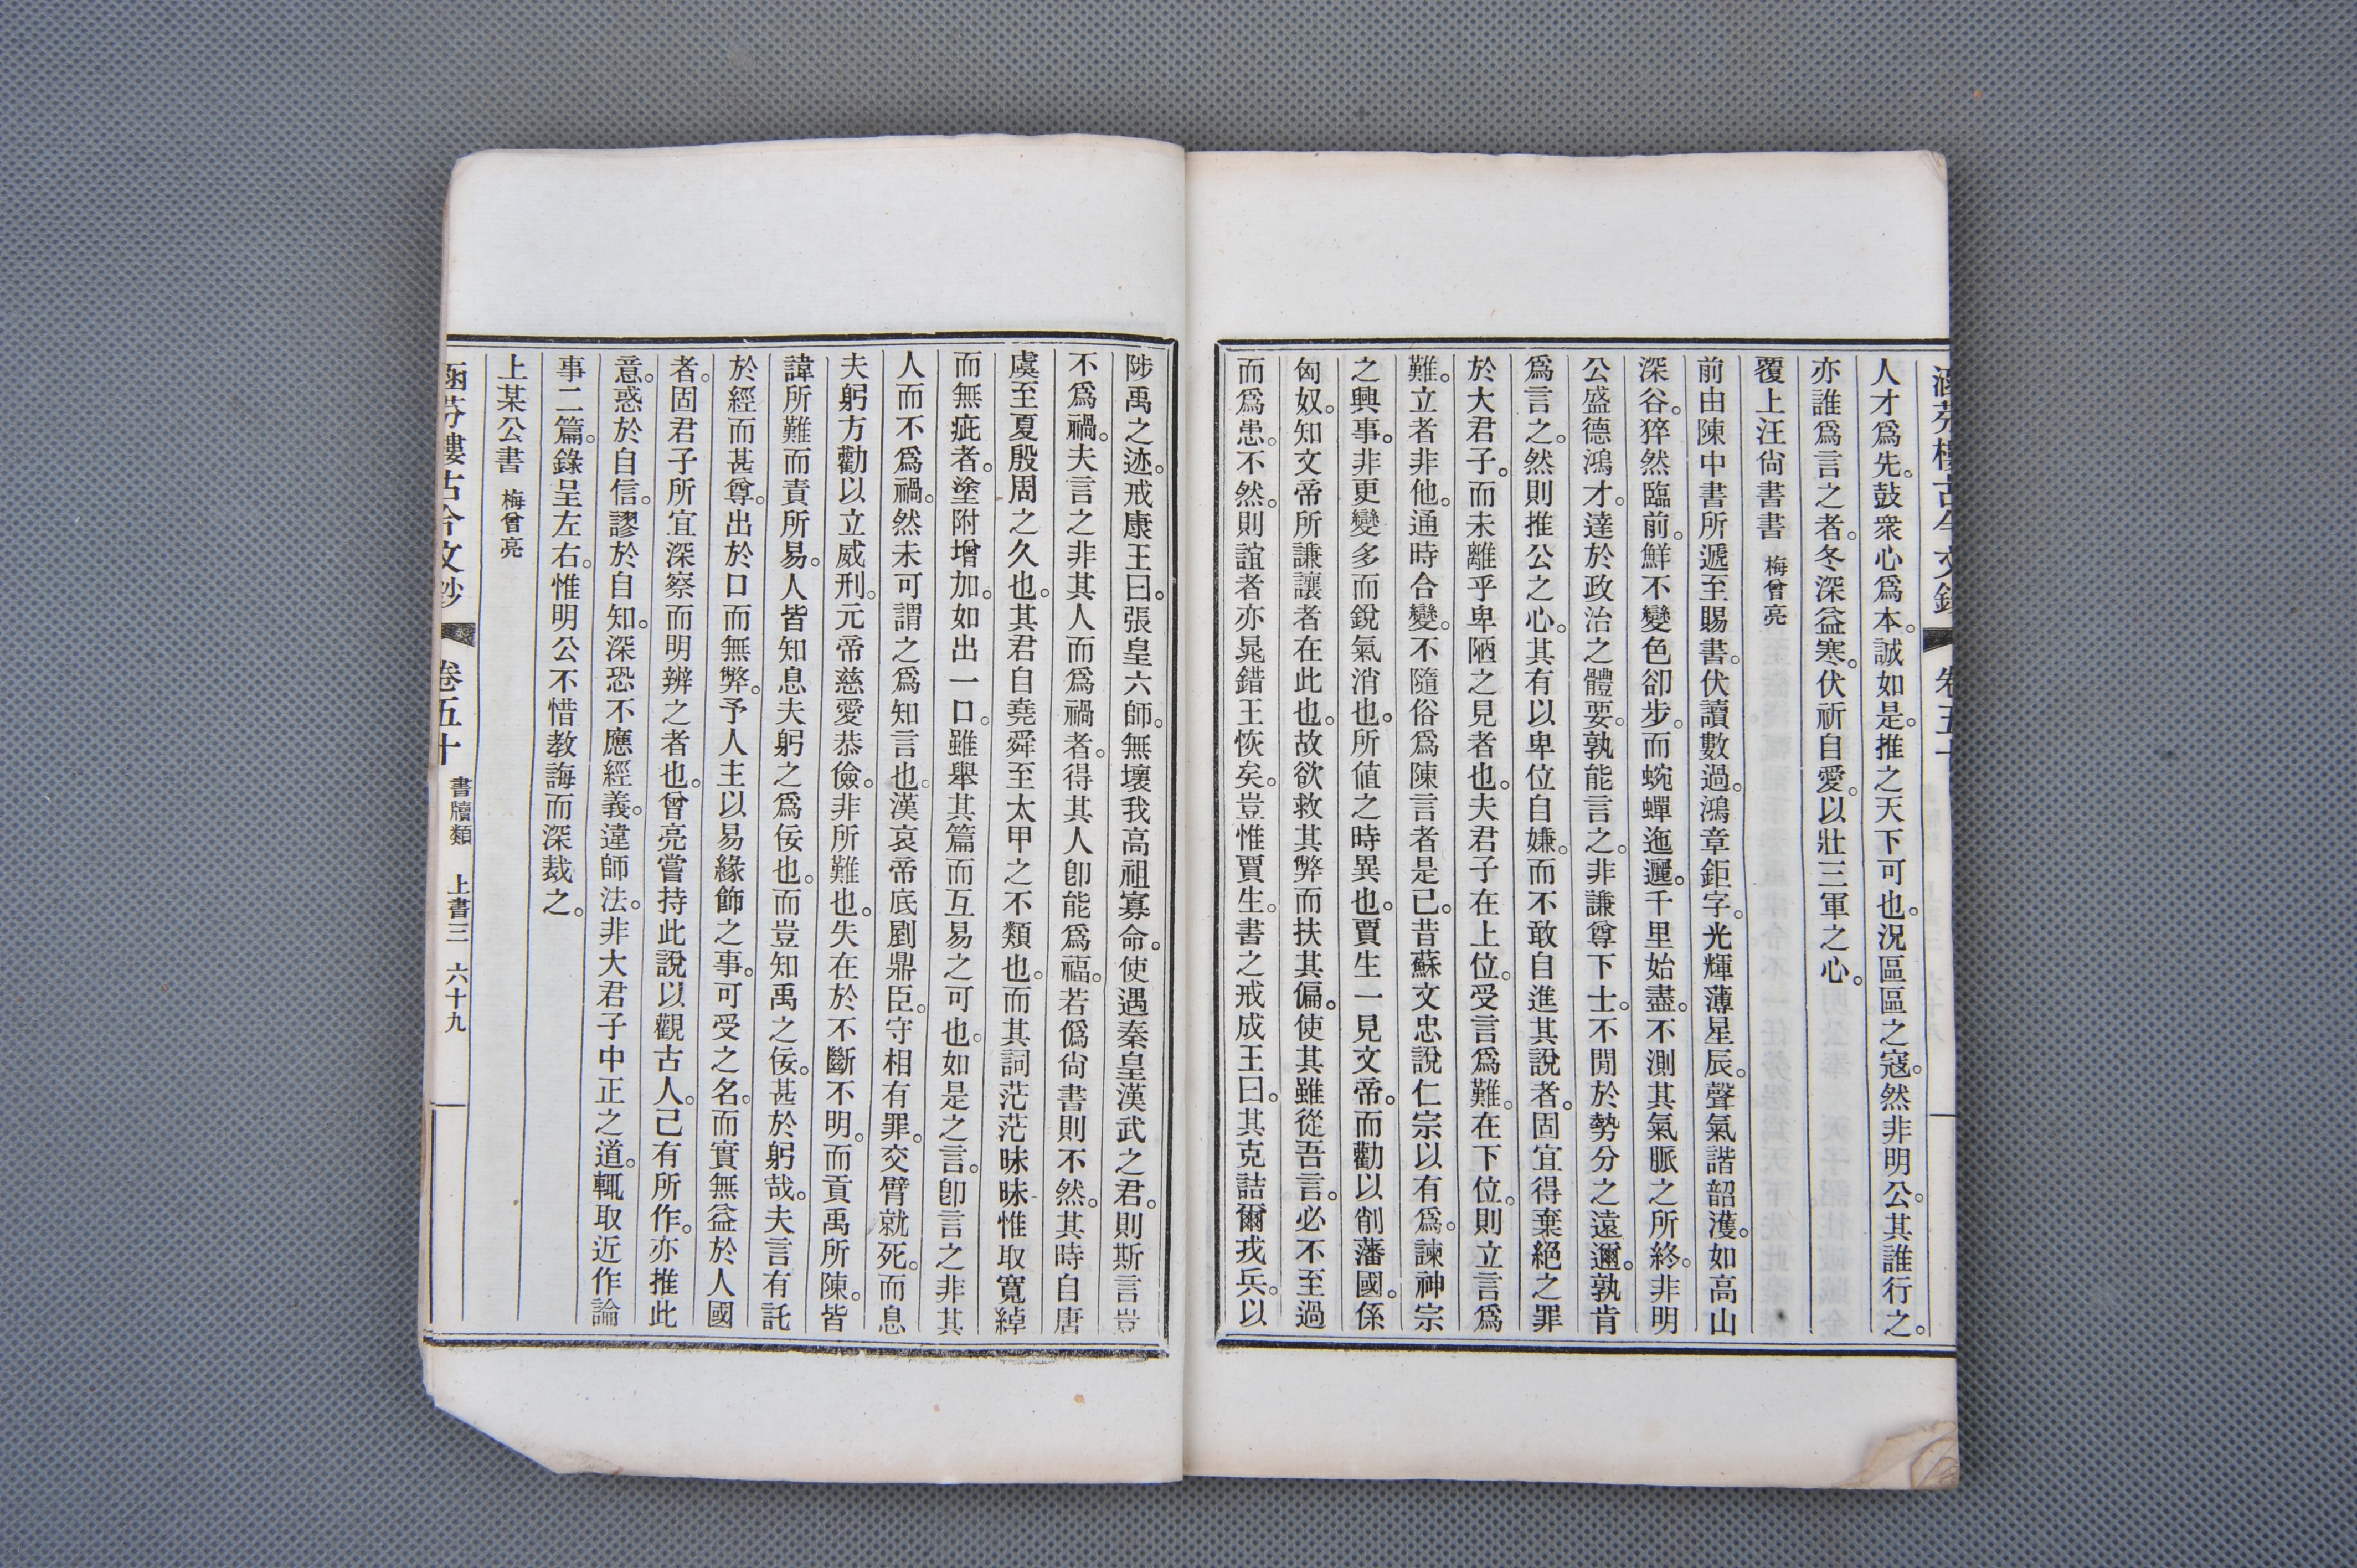 涵芬樓古今文鈔 卷五十
人才爲先。鼓衆心爲本。誠如是。推之天下可也。況區區之寇。然非明公。其誰行之。
亦誰爲言之者。冬深益寒。伏祈自愛。以壯三軍之心。
覆上汪尙書書 梅曾亮
前由陳中書所遞至賜書。伏讀數過。鴻章鉅字。光輝薄星辰。聲氣諧韶濩。如高山
深谷。猝然臨前。鮮不變色卻步。而蜿蟬迤邐。千里始盡。不測其氣脈之所終。非明
公盛德鴻才。達於政治之體要。孰能言之。非謙尊下士。不閒於勢分之遠邇。孰肯
爲言之。然則推公之心。其有以卑位自嫌。而不敢自進其說者。固宜得棄絕之罪
於大君子。而未離乎卑陋之見者也。夫君子在上位。受言爲難。在下位。則立言爲
難。立者非他。通時合變。不隨俗爲陳言者是已。昔蘇文忠說仁宗以有爲。諫神宗
之興事。非更變多而銳氣消也。所値之時異也。賈生一見文帝。而勸以削藩國。係
匈奴。知文帝所謙讓者在此也。故欲救其弊而扶其偏。使其雖從吾言。必不至過
而爲患。不然。則誼者亦晁錯王恢矣。豈惟賈生。書之戒成王曰。其克詰爾戎兵。以
陟禹之迹。戒康王曰。張皇六師。無壞我高祖寡命。使遇秦皇漢武之君。則斯言豈
不爲禍。夫言之非其人而爲禍者。得其人卽能爲福。若僞尙書則不然。其時自唐
虞至夏殷周之久也。其君自堯舜至太甲之不類也。而其詞茫茫昧昧惟取寬綽
而無疵者。塗附增加。如出一口。雖舉其篇而互易之可也。如是之言。卽言之非其
人而不爲禍。然未可謂之爲知言也。漢哀帝底劉鼎臣。守相有罪。交臂就死。而息
夫躬方勸以立威刑。元帝慈愛恭儉。非所難也。失在於不斷不明。而貢禹所陳。皆
諱所難而責所易。人皆知息夫躬之爲佞也。而豈知禹之佞。甚於躬哉。夫言有託
於經而甚尊。出於口而無弊。予人主以易緣飾之事。可受之名。而實無益於人國
者。固君子所宜深察而明辨之者也。曾亮嘗持此說以觀古人。己有所作。亦推此
意。惑於自信。謬於自知。深恐不應經義。違師法。非大君子中正之道。輒取近作論
事二篇。錄呈左右。惟明公不惜教誨而深裁之。
上某公書 梅曾亮
涵芬樓古今文鈔 卷五十 書牘類 上書三 六十九